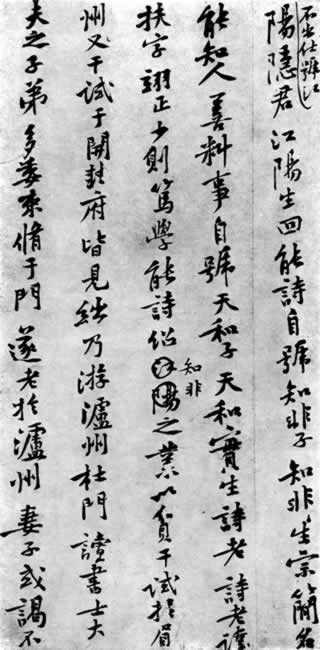 不出仕號江
陽隱君江陽生回能詩自號知非子知非生宗簡名
能知人善料事自號天和子天和實生詩老詩老諱
扶字翊正少則篤學能詩紹江陽之業以貢干試於眉
知非
州又干試于開封府皆見絀乃游瀘州杜門讀書士大
夫之子弟多委束脩于門遂老於瀘州妻子或謁不